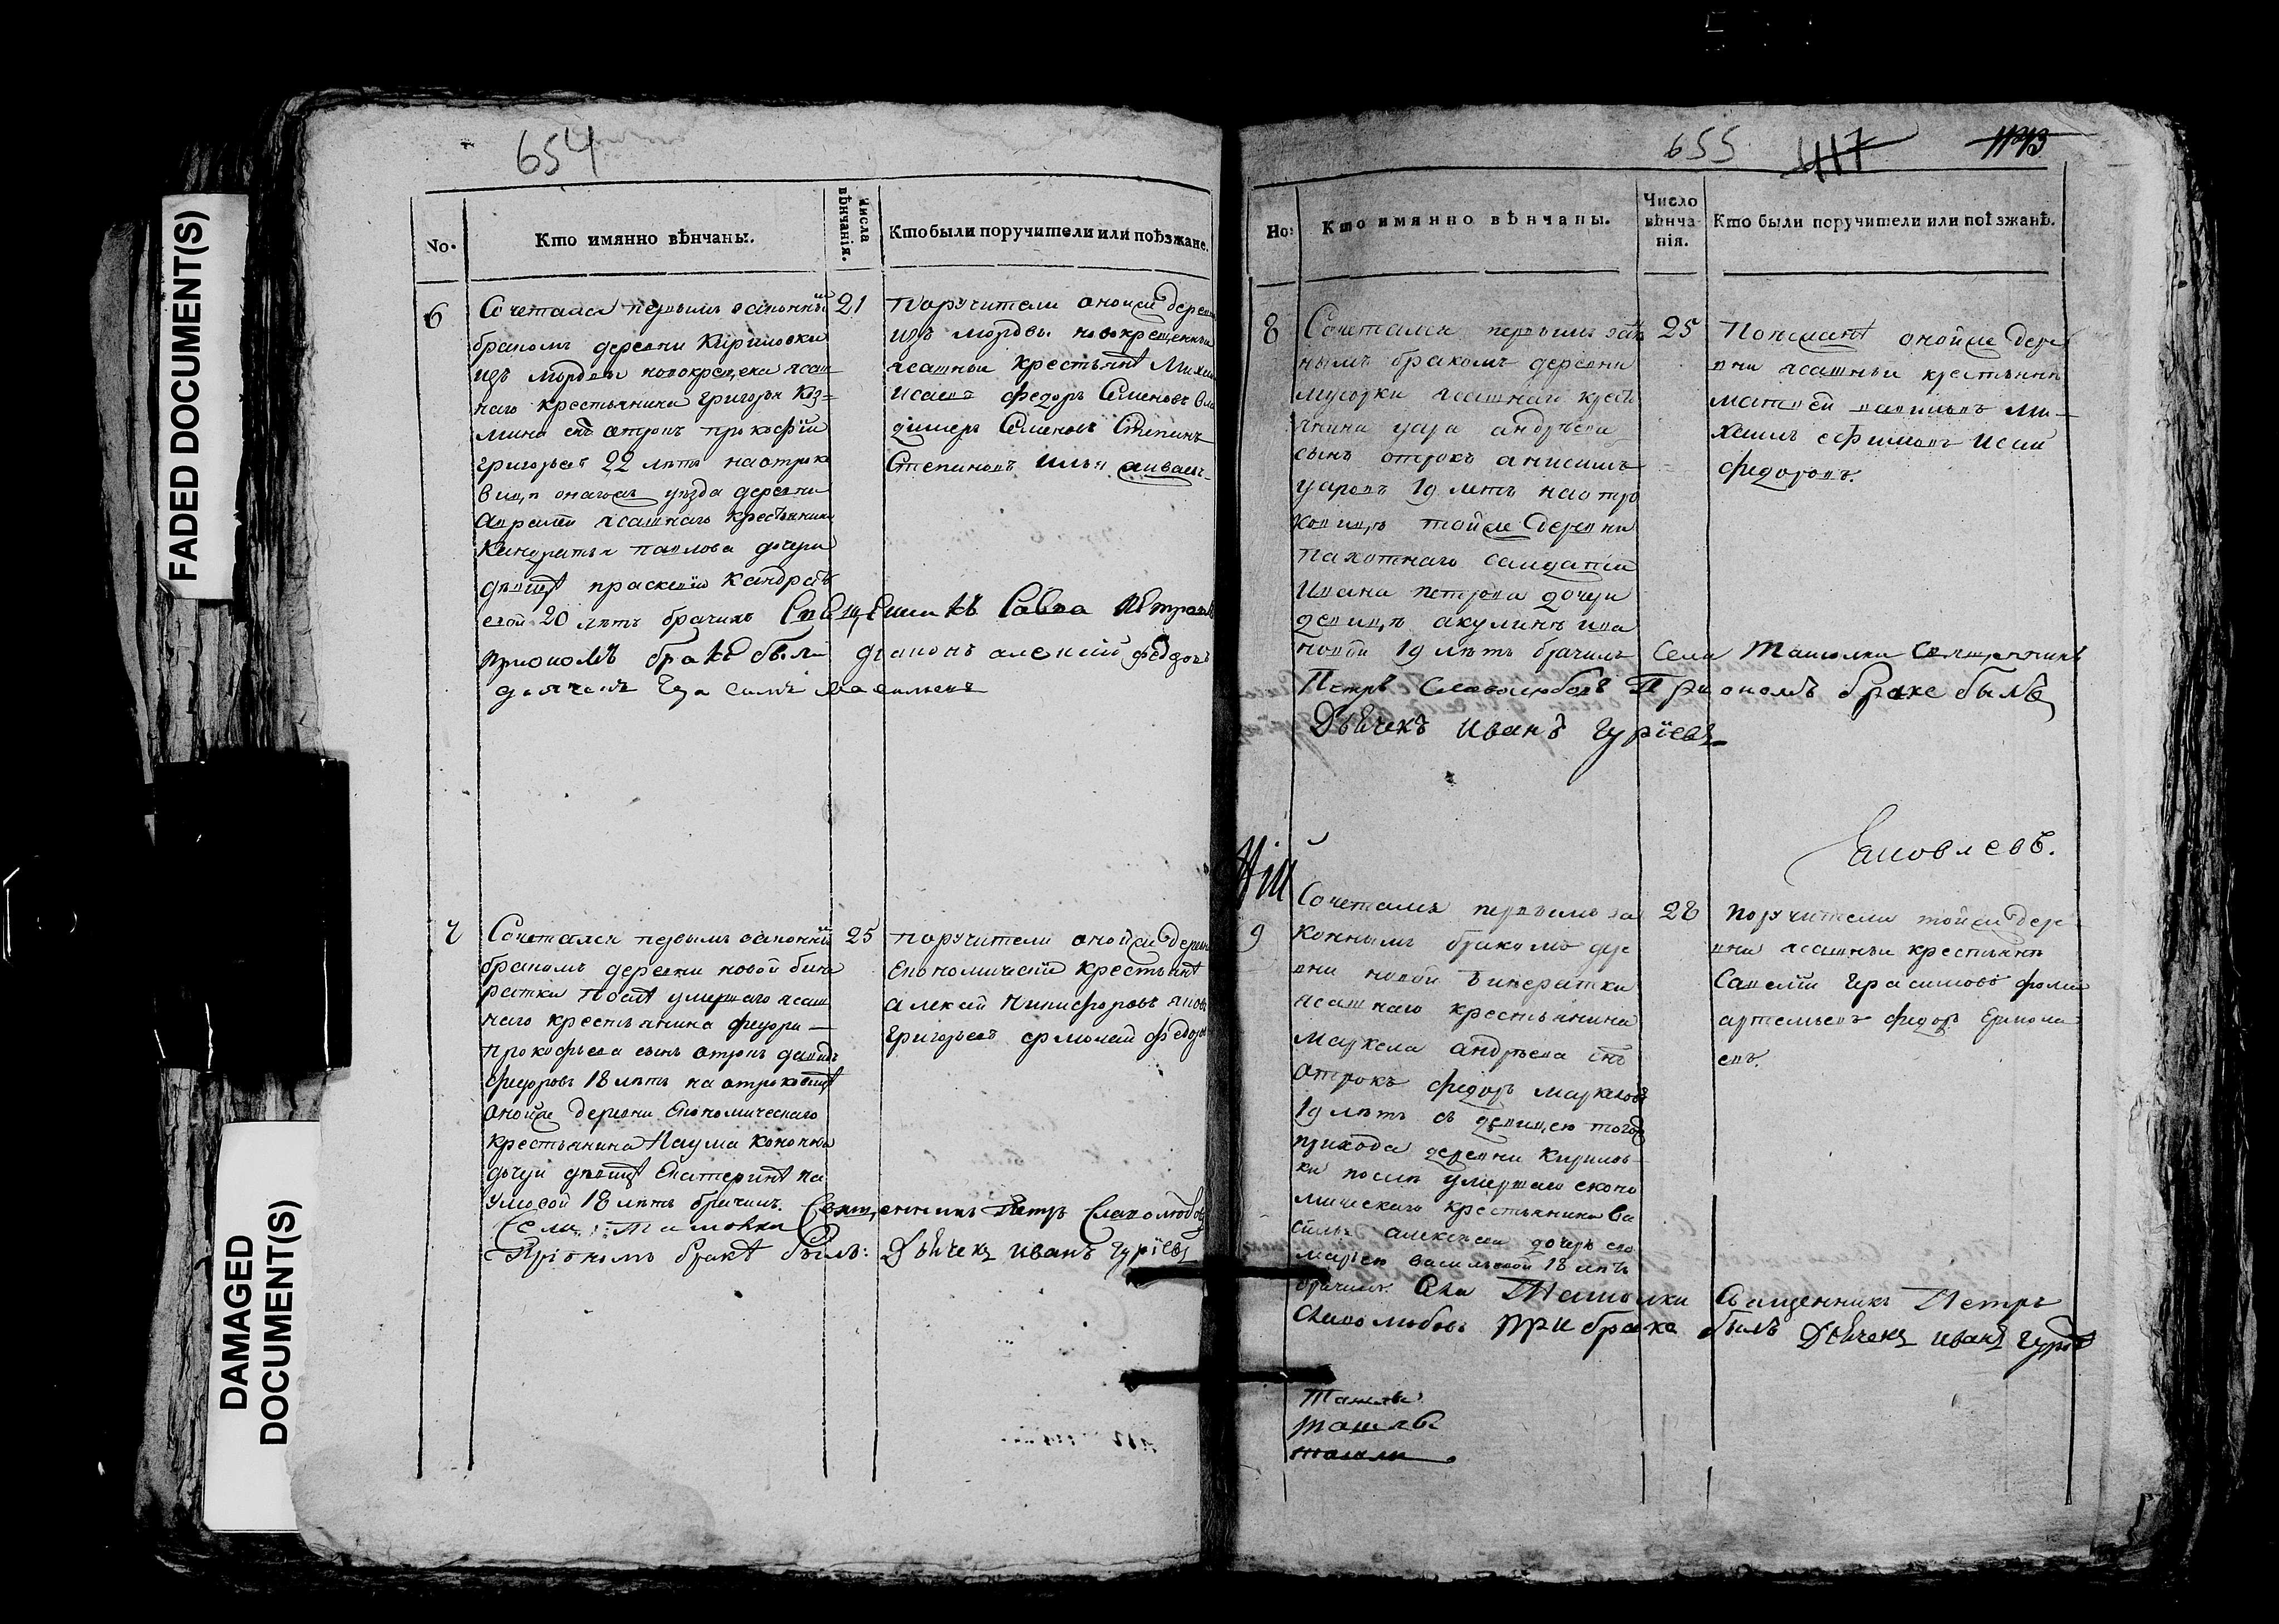 FADED DOCUMENT(S)
DAMAGED
DOCUMENT(S)
654
No.
Кто имянно вѣнчаны.
Числа вѣнчанія.
Кто были поручители или поѣзжане.
6
Сочетался первымъ законны
21
бракомъ деревни Кириловки
изъ мордвы новокрещена ясаш
наго крестьянина григорья Коз=
мина снъ отрокъ прокофiй
григорьевъ 22 лѣтъ на отроко
вицѣ уѣзда деревни
ясашнаго крестьянина
Кандратья павлова дочери
девицѣ праскевiи Кандрать
евой 20 лѣтъ брачилъ Священникъ Савва Петровъ
приономъ бракѣ были дьяконъ алексiй федоровъ
дьячекъ
Поручители онойже деревни
изъ мордвы новокрещенныя
ясашныя крестьянѣ Михаи
Исаевъ федоръ Семеновъ Вла
димеръ Семеновъ Степанъ
Степановъ илья
7
Сочетался первымъ законны
25
бракомъ деревни новой бина
ратки послѣ умершаго ясаш
наго крестьянина федора
прокофьева сынъ отрокъ давыдъ
федоровъ 18 лѣтъ на отроковицѣ
онойже деревни Економическаго
крестьянина Наума
дочери девицѣ Екатеринѣ На
умовой 18 лѣтъ брачилъ. Священникъ Петръ Славолюбовъ
Села Ташолки
Приономъ бракѣ былъ: Дьячекъ иванъ гурїевъ
поручители онойже деревни
Економическiя крестьянѣ
алексей Никифоровъ яковъ
григорьевъ ермолай федоров
655
417
Но:
Кто имянно вѣнчаны.
Число вѣнча-нія.
Кто были поручители или поѣзжанѣ.
8
Сочетался первымъ зако
25
ннымъ бракомъ деревни
мусорки ясашнаго кресть
янина уара андрѣева
сынъ отрокъ анисимъ
уаровъ 19 лѣтъ на отро
ковицѣ тойже деревни
пахотнаго салдата
Ивана петрова дочери
девицѣ акулинѣ ива
новой 19 лѣтъ брачилъ Села Ташолки Священникъ
Петръ Славолюбовъ Приономъ браке былъ
Дьячекъ Иванъ Гурїевъ
онойже дере
вни ясашныя крестьяни
матвей Ми-
хаилъ ефимовъ Исай
федоровъ.
Яковлевъ.
9
Сочетался первымъ за
28
коннымъ бракомъ дере
вни новой бинератки
ясашнаго крестьянина
Маркела андрѣева снъ
отрокъ федоръ маркеловъ
19 лѣтъ съ девицею тогож
прихода деревни Кирилов-
ки послѣ умершаго еконо
мическаго крестьянина Ва
силья алексѣева дочерь его
марьею васильевой 18 лѣтъ
брачилъ. Села Ташолки Священникъ Петръ
Славолюбовъ при браке былъ Дьячекъ иванъ гурїев
поручители тойже дере-
вни ясашныя крестьянѣ
Савелiй Герасимовъ фома
артемьевъ федоръ Ермола
евъ.